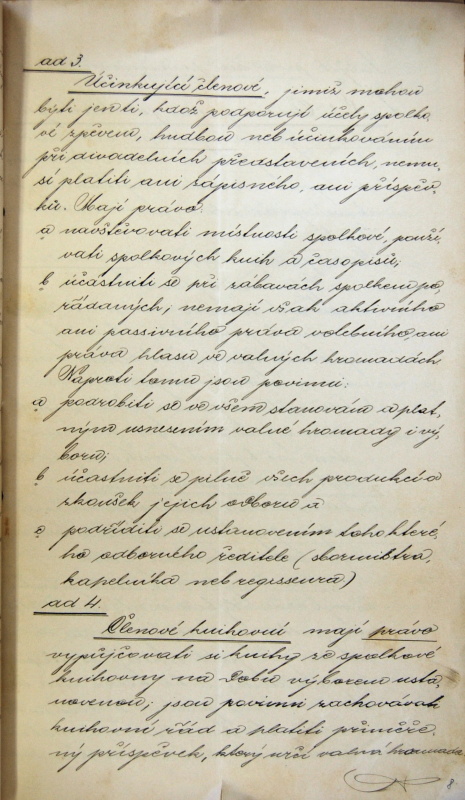 ad 3.
Účinkující členové, jimiž mohou
býti jen ti, kdož podporují účely spolko
vé zpěvem, hudbou neb účinkováním
při divadelních představeních, nemu,
sí platiti ani zápisného, ani příspěv,
ků. Mají právo:
a navštěvovati místnosti spolkové, použí,
vati spolkových knih a časopisů;
b účastniti se při zábavách spolkem po,
řádaných; nemají však aktivního
ani passivního práva volebního, ani
práva hlasu ve valných hromadách.
Naproti tomu jsou povinni:
a podrobiti se ve všem stanovám a plat,
ným usnesením valné hromady i vý,
boru;
b účastniti se pilně všech produkcí a
zkoušek jejich odboru a
c podříditi se ustanovením toho které,
ho odborného ředitele (sbormistra,
kapelníka neb regisseura)
ad 4.
Členové knihovní mají právo
vypůjčovati si knihy ze spolkové
knihovny na dobu výborem usta,
novenou; jsou povinni zachovávati
knihovní řád a platiti přiměře,
ný příspěvek, který určí valná hromada
8